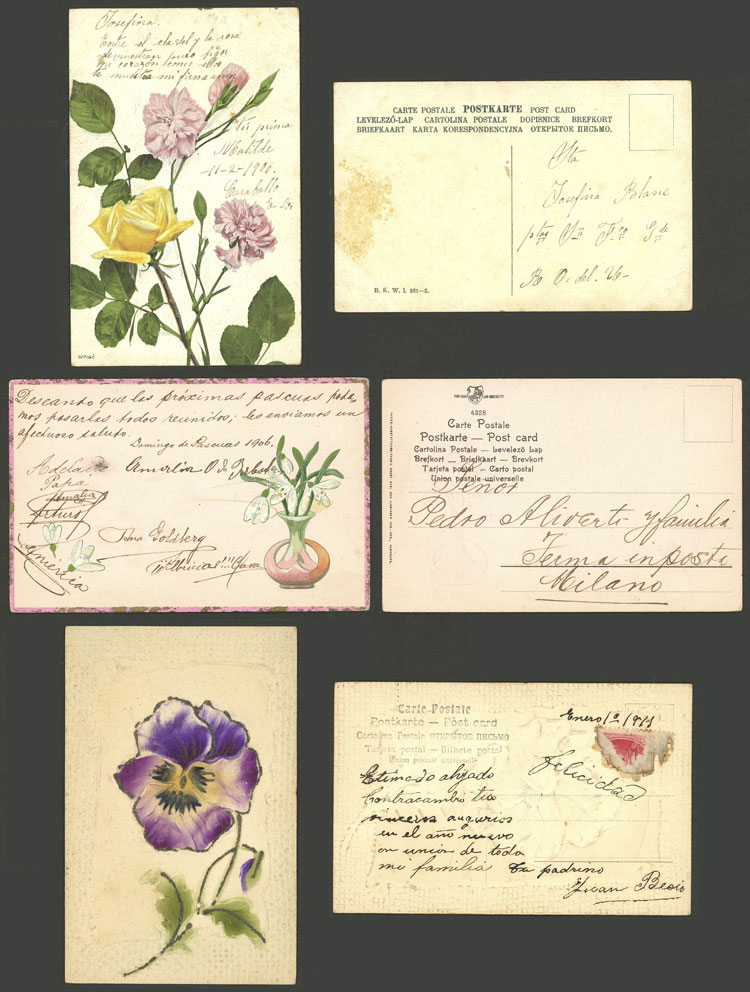 Josefina.
Entre el clavel y la rosa
demuestran
mi corazón como ellos
te muestra mi firma
tu prima
Matilde
11-2-1906.
Caraballo
CARTE POSTALE POSTKARTE POST CARD
LEVELEZŐ-LAP CARTOLINA POSTALE DOPISNICE BREFKORT
BRIEFKAART KARTA KORESPONDENCYJNA ОТКРЫТОЕ ПИСЬМО.
Sta
Josefina Blanc
B. K. W. I. 925-2.
Deseando que las próximas pascuas poda-
mos pasarlas todos reunidos; les enviamos un
afectuoso saluto.
Domingo de Pascuas 1906.
Adelaida
Papa
Arturo
Goldberg
Clara
4328
Carte Postale
Postkarte — Post card
Cartolina Postale — Levelező Lap
Brefkort — Briefkaart — Brevkort
Tarjeta postal — Carto postal
Union postale universelle
Señor
Pedro Aliverti y familia
Ferma in posta
Milano
Carte Postale
Postkarte — Post card
Cartolina Postale ОТКРЫТОЕ ПИСЬМО
Tarjeta postal — Bilhete postal
Union postale universelle
Enero 1º/1911
Felicidad
Estimado ahijado
Contracambio tus
sinceros augurios
en el año nuevo
en union de toda
mi familia tu padrino
Juan Besio